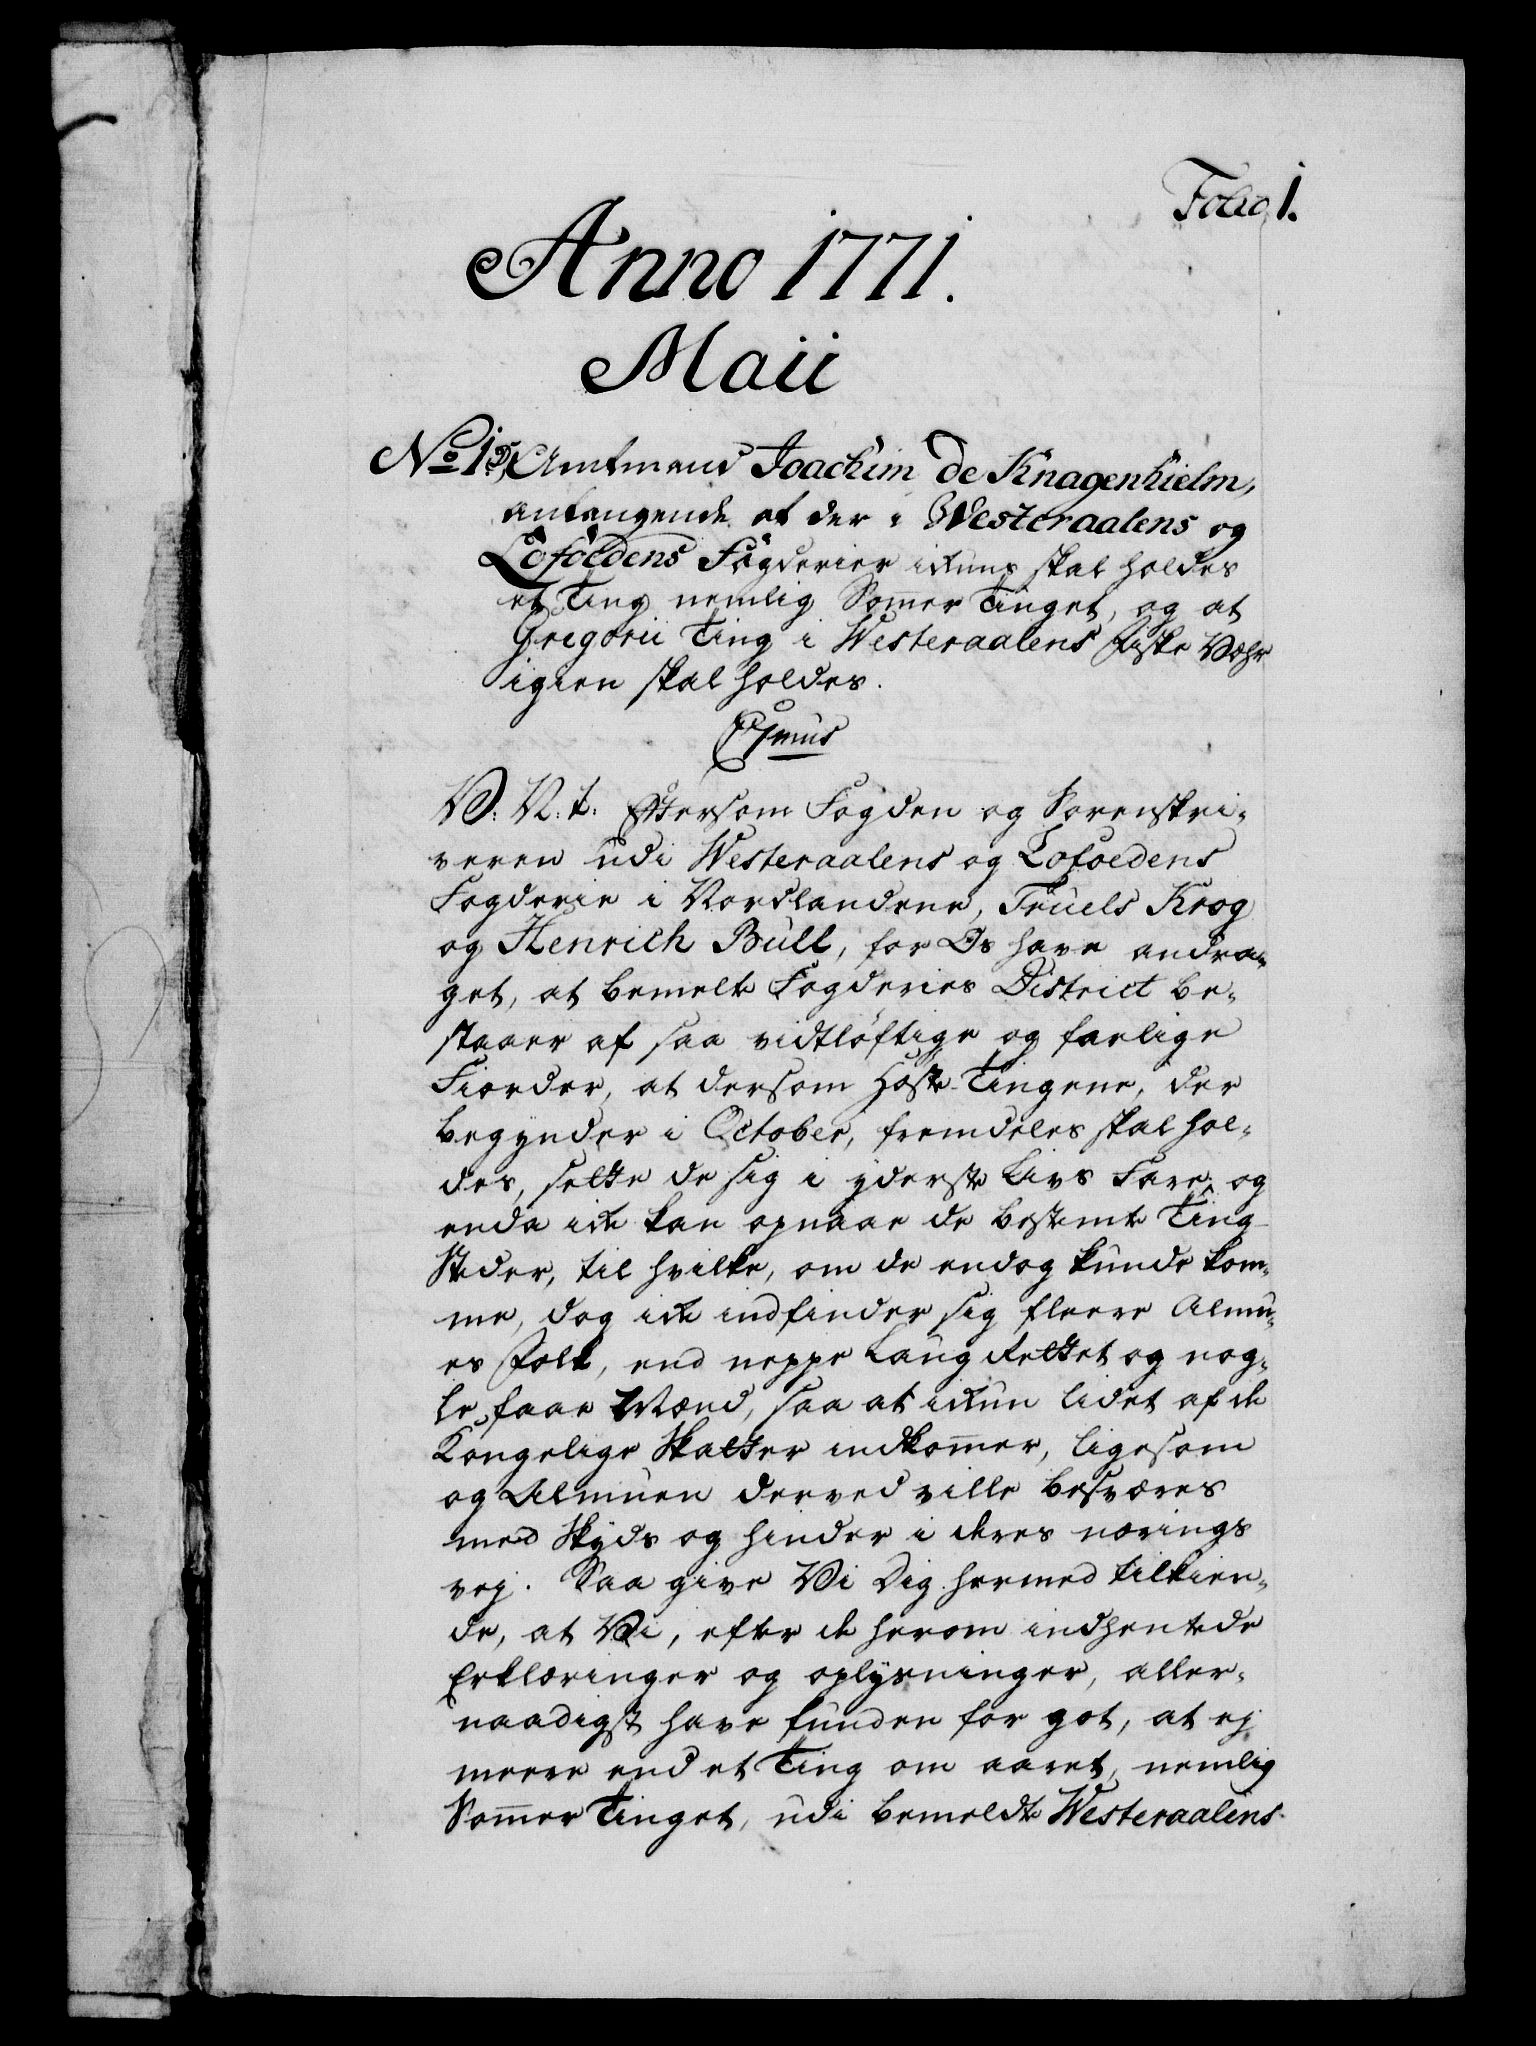 Folio 1.
Anno 1771.
Maii
No 1. Amtmand Joachim de Knagenhielm,
anlangende at der i Westeraalens og
Lofoedens Fogderier ickuns skal holdes
et Ting nemlig Som̅er Tinget, og at
Gregorii Ting i Westeraalens Fiske Vehr
igien skal holdes.
V: V: t: Eftersom Fogden og Sorenskri-
veren udi Westeraalens og Lofoedens
Fogderie i Nordlandene, Truels Krog
og Henrich Bull, for Os have andra-
get, at bemelte Fogderies District be-
staaer af saa vidtløftige og farlige
Fiorder, at dersom Høste-Tingene, der
begynder i October, fremdeles skal hol-
des, sette de sig i yderste Livs Fare, og
enda icke kan opnaae de bestemte Ting-
Steder, til hvilke, om de endog kunde kom-
me, dog icke indfinder sig fleere Almu-
es Folk, end neppe Laug Rettet og nog-
le faae Mænd, saa at ickun lidet af de
Kongelige Skatter indkom̅er, ligesom
og Almuen derved ville besværes
med Skyds og hinder i deres nærings
vej. Saa give Vi Dig hermed tilkien-
de, at Vi, efter de herom indhentede
Erklæringer og oplysninger, aller-
naadigst have funden for got, at ej
meere end et Ting om aaret, nemlig
Som̅er Tinget, udi bemeldte Westeraalens